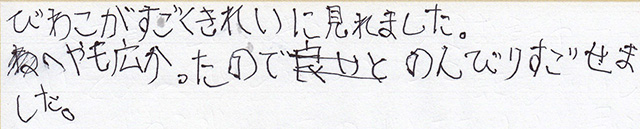 びわこがすごくきれいに見れました。
へやも広かったのでのんびりすごせま
した。